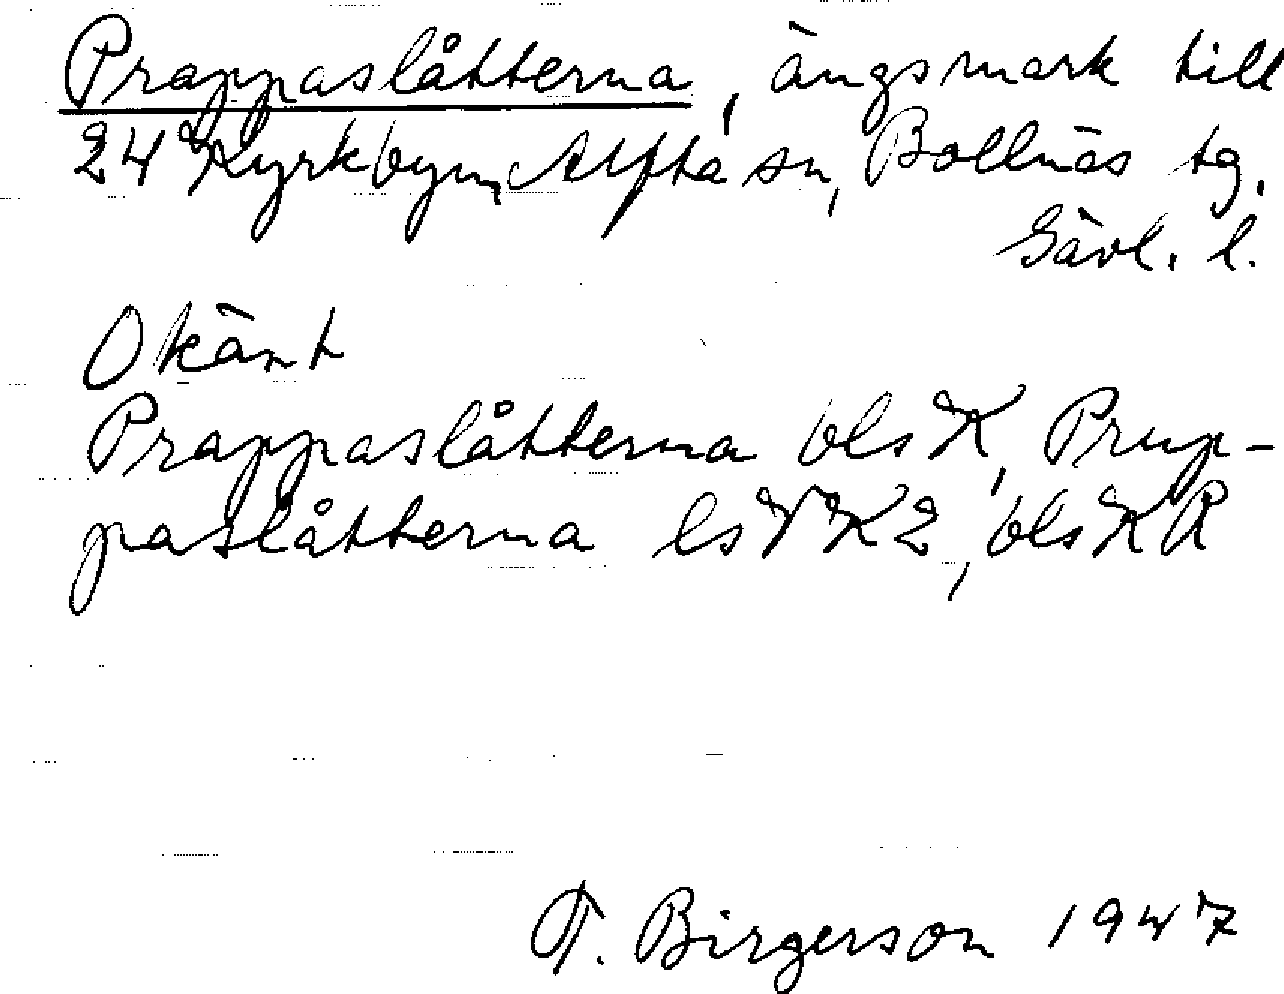 Prappaslåtterna, ängsmark till
24 Kyrkbyn, Alfta sn, Bollnäs tg.
Gävl. l.
Okänt
Prappaslåtterna bls K, Prup-
paslåtterna ls VK2, bls KR
T. Birgerson 1947